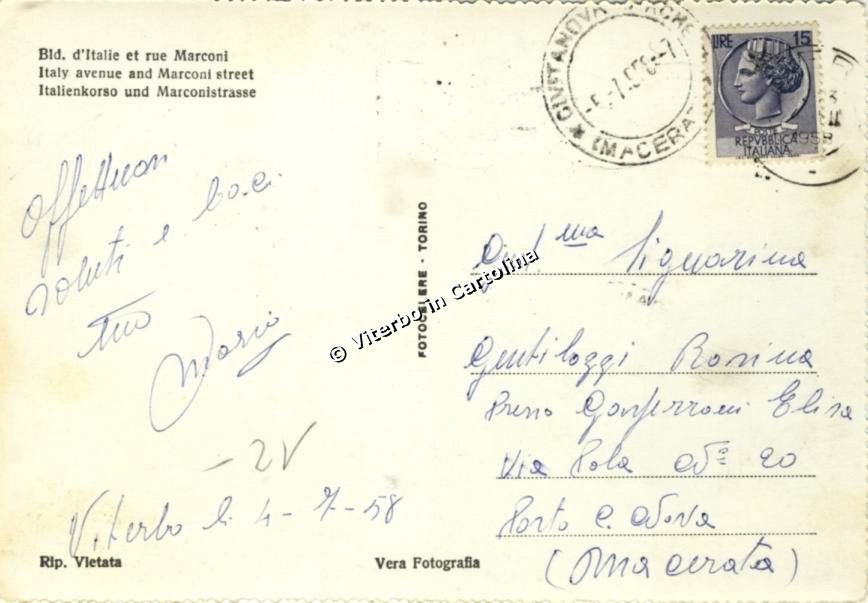 Bld. d'Italie et rue Marconi
Italy avenue and Marconi street
Italienkorso und Marconistrasse
CIVITANOVA MARCHE
(MACERATA)
LIRE 15
POSTE
REPVBBLICA
ITALIANA
1958
Affettuosi
saluti e baci
tuo
Mario
- 2V
Viterbo li 4 - 7 - 58
FOTOCELERE - TORINO
© Viterbo in Cartolina
Gent.ma Signorina
Gentilozzi Rosina
Presso Gasperroni Elisa
Via Pola N° 20
Porto C. Nova
(Macerata)
Rip. Vietata
Vera Fotografia